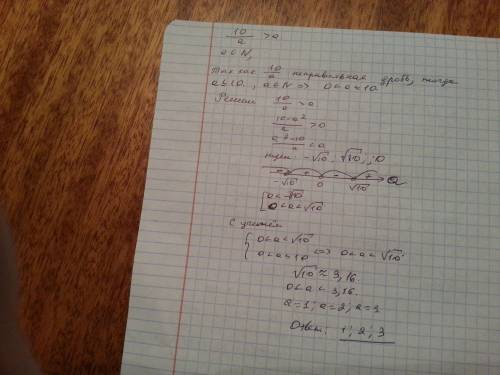 10/a > a
a ∈ N,
Так как 10/a неправильная дробь, тогда
a ≤ 10, a ∈ N => 0 < a ≤ 10
Решим 10/a > a
10-a²/a > 0
a²-10/a < 0
нули: -√10; √10; 0
- + - + a
-√10 0 √10
[ a < -√10
0 < a < √10
С учётом
{ 0 < a < √10
0 < a ≤ 10 <=> 0 < a < √10
√10 ≈ 3,16
0 < a < 3,16
a = 1; a = 2; a = 3
Ответ: 1; 2; 3